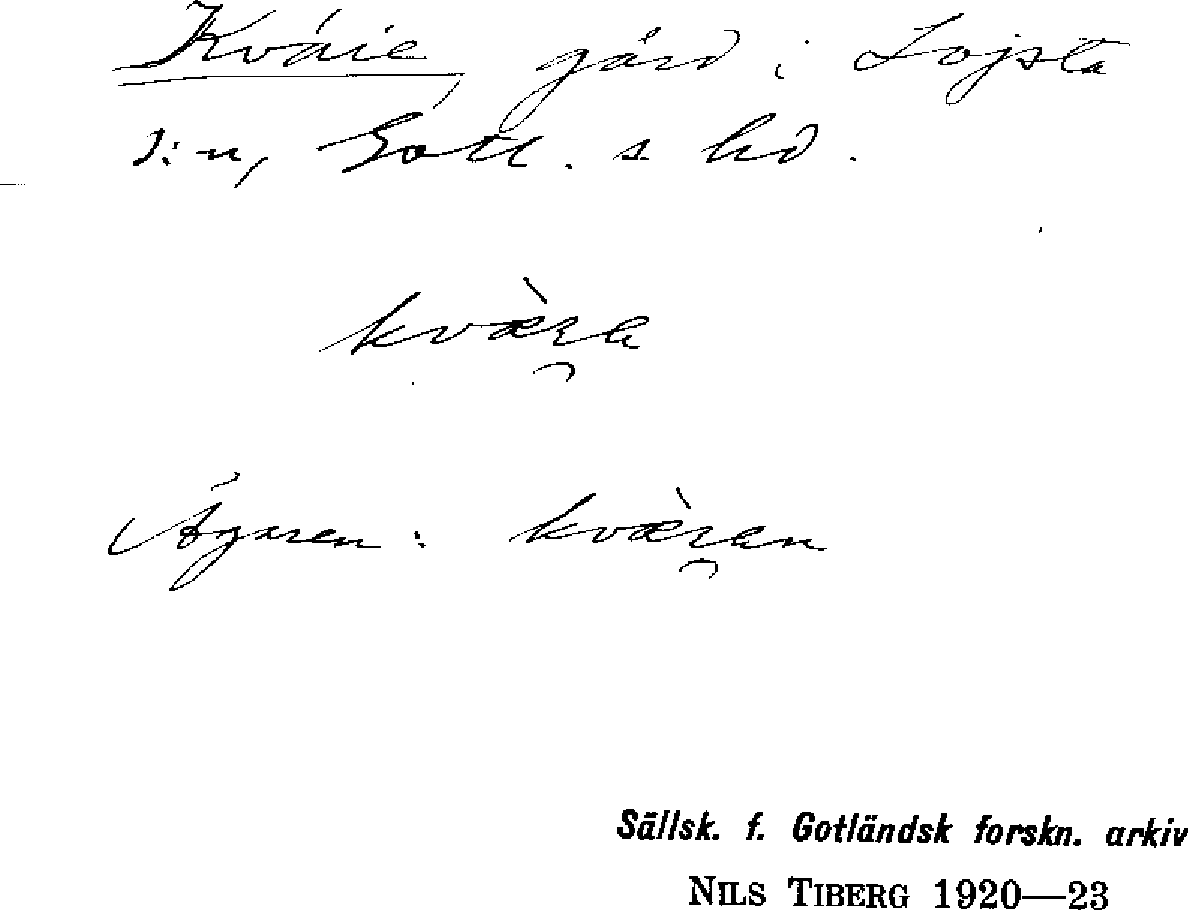 Kváie, gård i Lojsta
s:n, Gotl. s hd.
kvæ̀ɪ̯a
Ägaren: kvæ̀ɪ̯an
Sällsk. f. Gotländsk forskn. arkiv
NILS TIBERG 1920—23